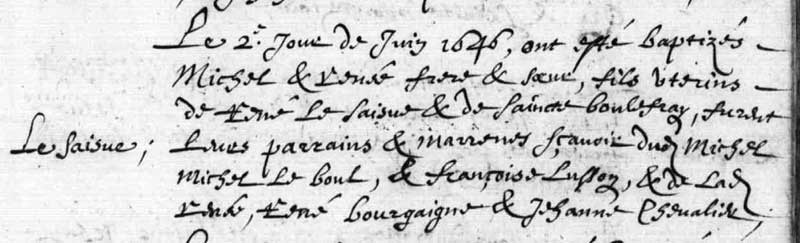 Le 2e Jour de Juin 1646, ont esté baptizés
Michel & Renée frere & sœur, fils uterins
de René Le Saisue & de Saincte boulefray, furent
Le Saisue ; Leurs parrains & marrenes sçavoir dud Michel
Michel Le boul, & françoise Lusson, & de Lad
Renée, René bourgaigne & Jehanne Chevalier,